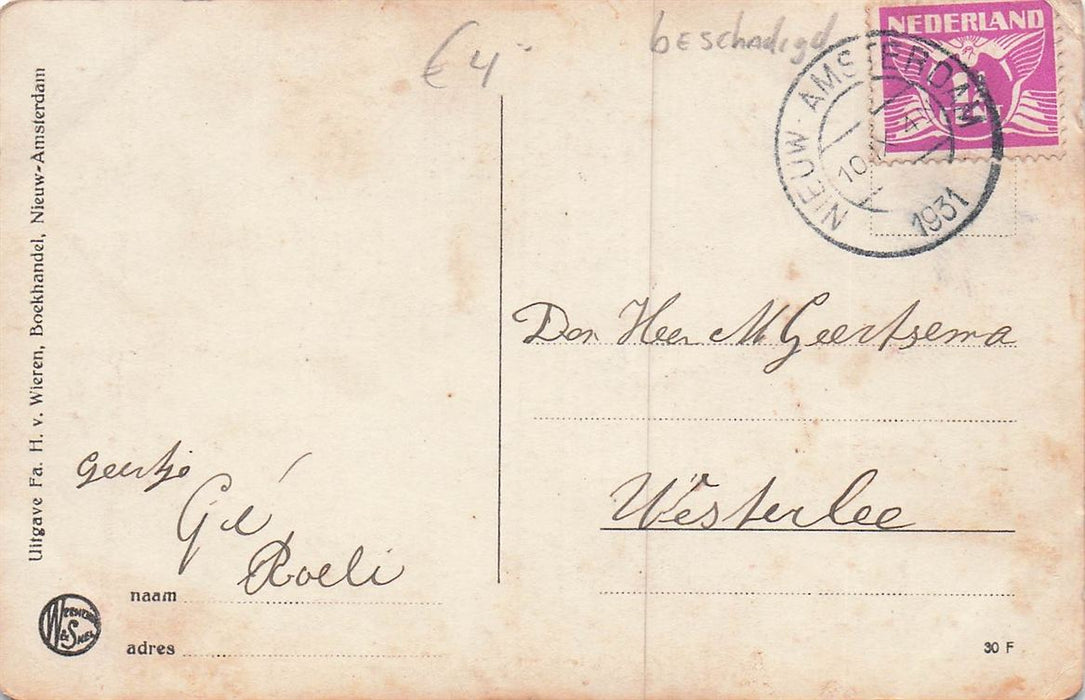 € 4
beschadigd
NEDERLAND
NIEUW-AMSTERDAM
1931
Uitgave Fa. H. v. Wieren, Boekhandel, Nieuw-Amsterdam
Den Heer M Geertsema
Westerlee
Geertje
Gé
Roeli
naam
adres
30 F